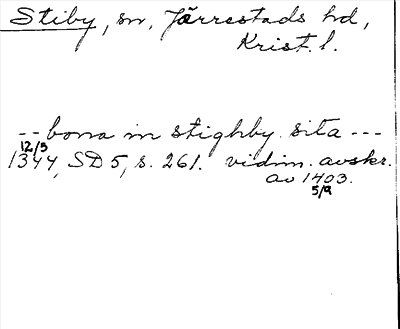 Stiby, sn, Järrestads hd,
Krist. l.
-- bona in stighby sita ---
12/5
1344, SD 5, s. 261. vidim. avskr.
av 1403.
5/9